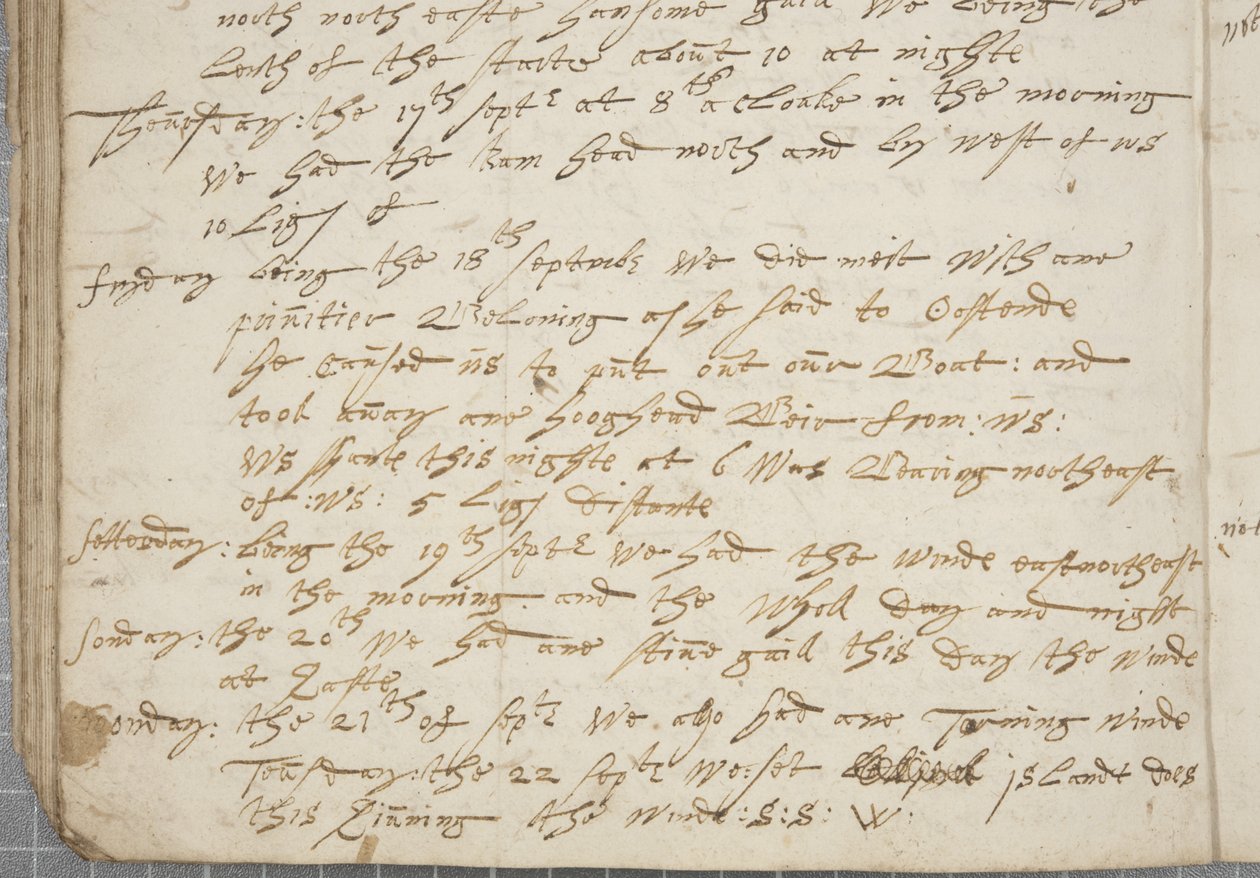 north north easte hansome gaill We being the
Lenth of the starte about 10 at nighte
Theursday: the 17th septr at 8th a cloake in the morning
We had the Ram head north and by west of us
10 Ligs of
fryday being the 18th septmbr We did meit With ane
privitier Beloning as he said to Oostende
he Caused us to put out our Boat: and
took away ane hooghead Beir from: us:
Ws this nighte at 6 Was Bearing northeast
of: ws: 5 Ligs distante
setterday: being the 19th septr We had the Winde eastnortheast
in the morning and the Wholl day and night
sonday: the 20th We had ane stive gaill this day the Winde
at Easte
moonday: the 21th of septr We also had ane Torning Winde
Teusday: the 22 septr We: set islandt does
this Eivning the Winde: S: S: W:
not
not